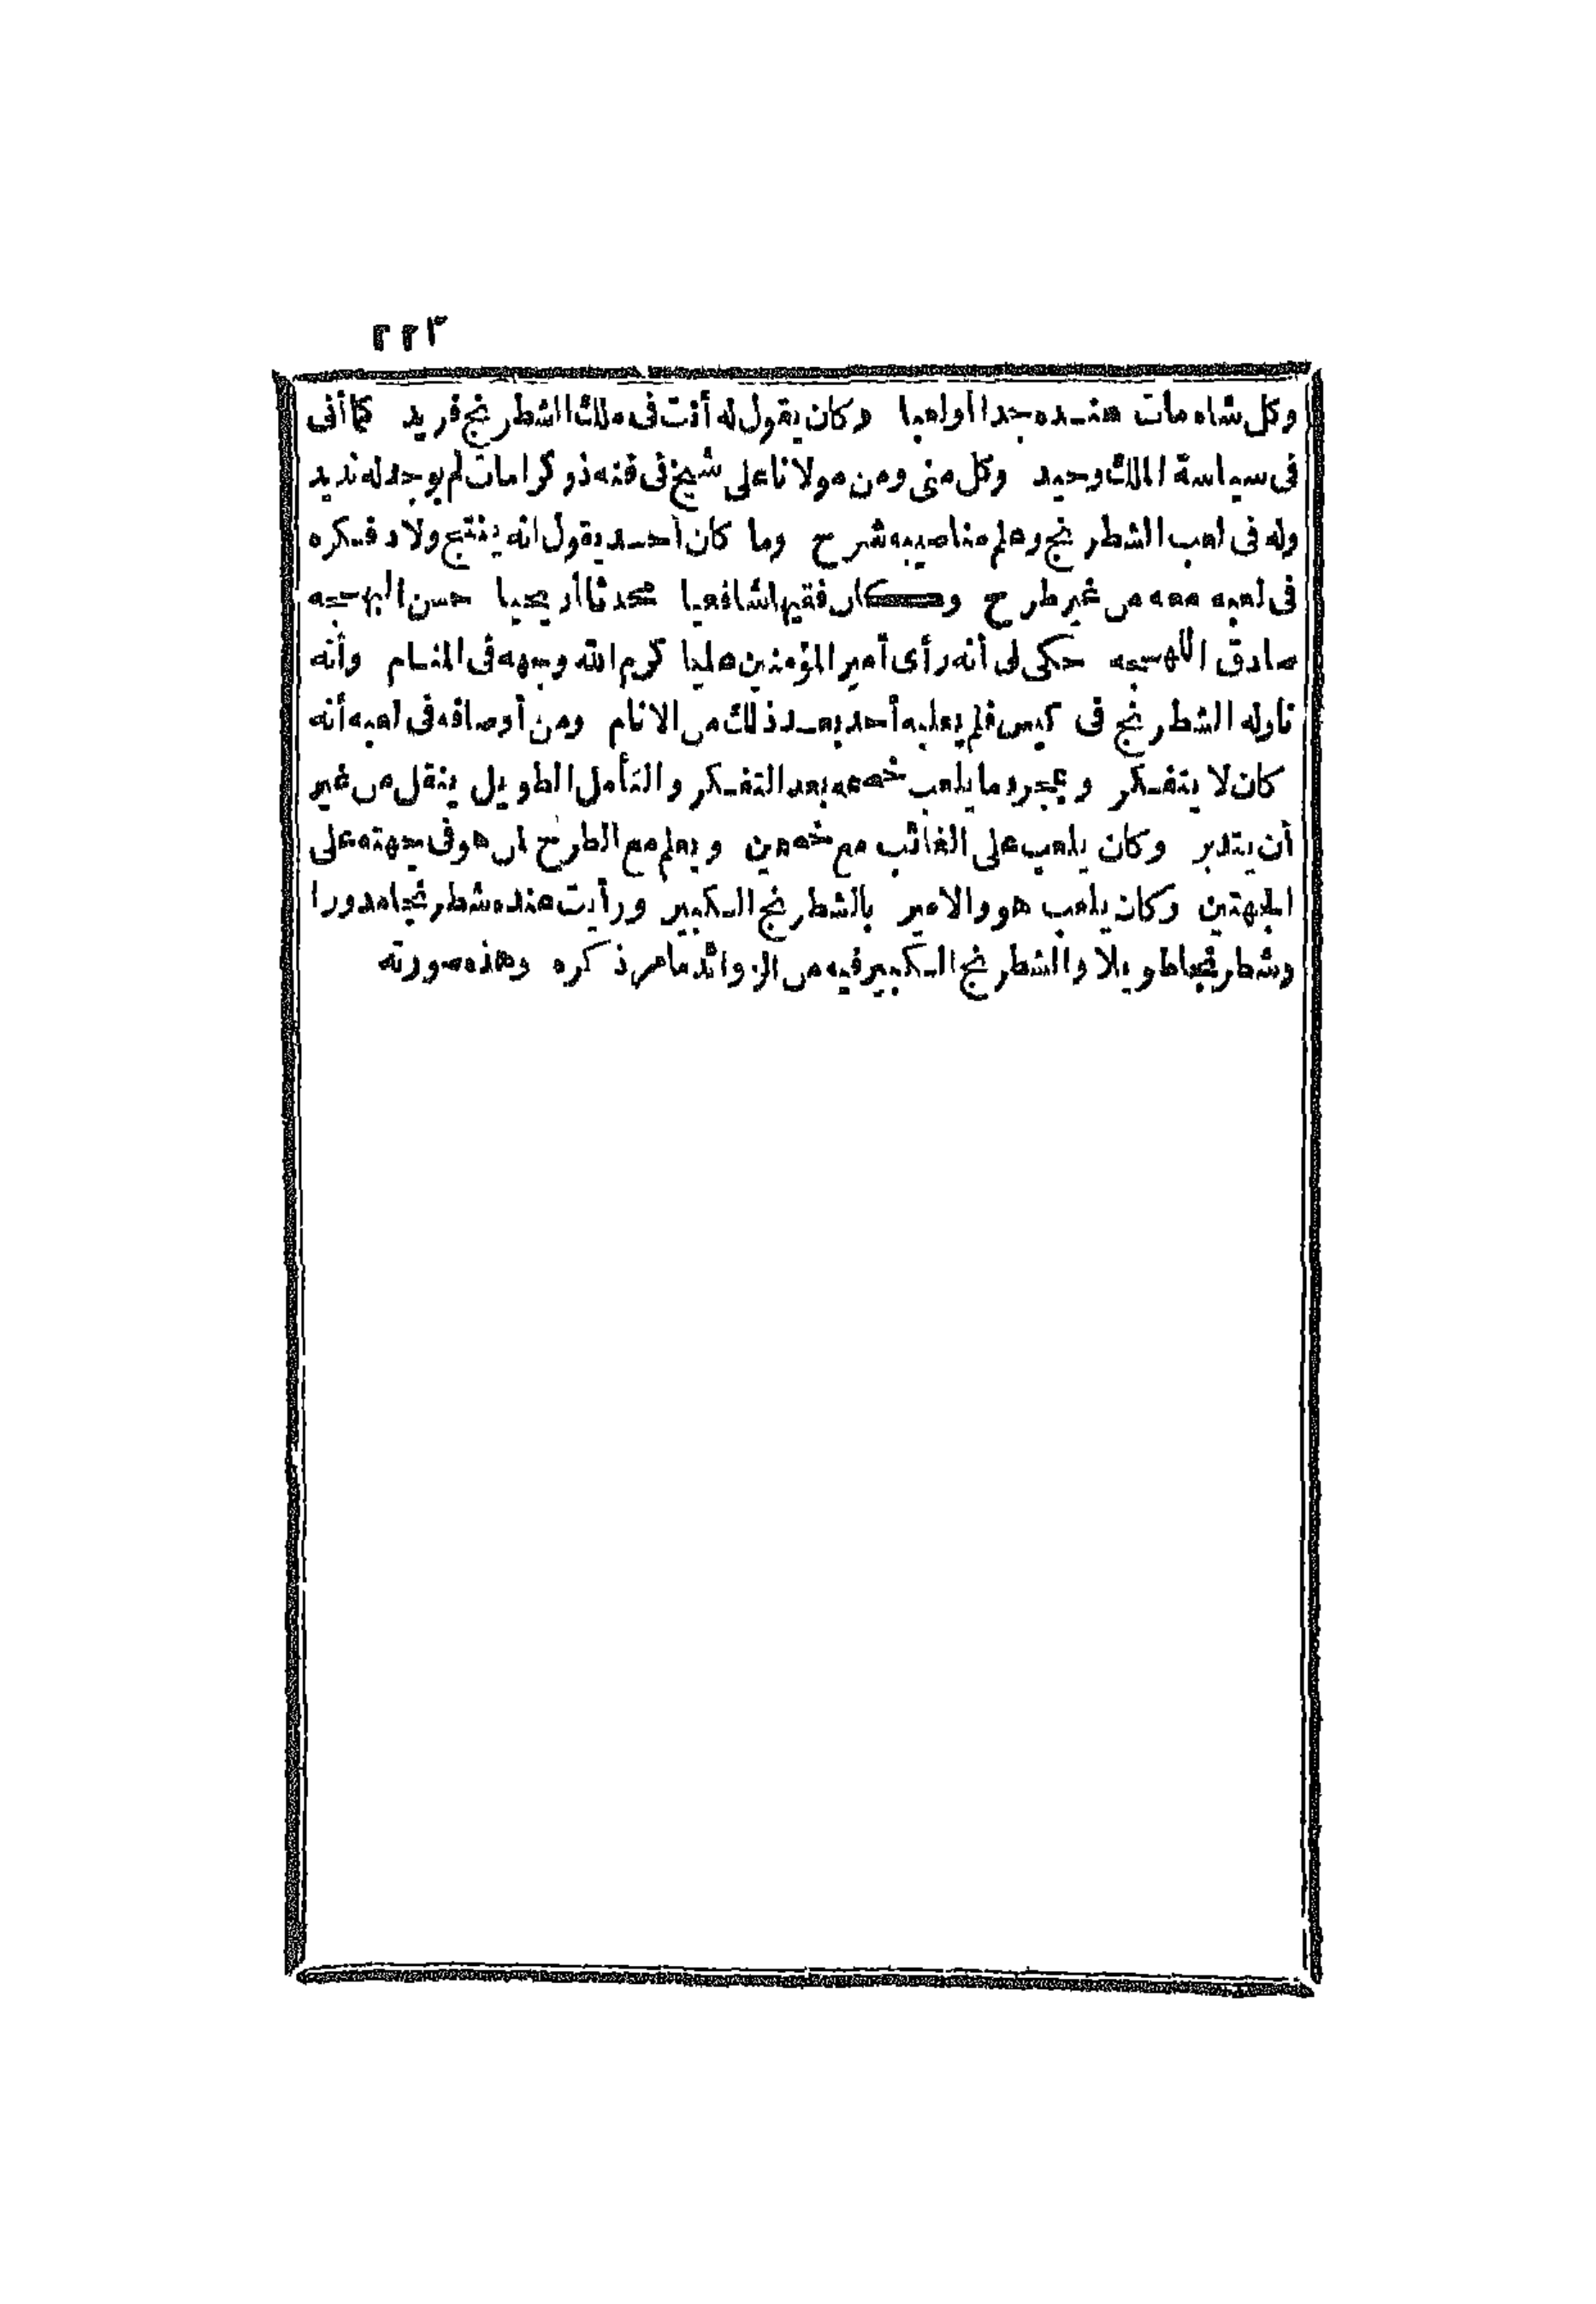 ٢٢٣
وكل شاه مات عنده جدا أولعبا وكان يقول له أنت فى ملك الشطرنج فريد كما أنى
فى سياسة الملك وحيد وكل منى ومن مولانا على شيخ فى فنه ذو كرامات لم يوجد له نديد
وله فى لعب الشطرنج وعلم مناصيبه شرح وما كان أحد يقول انه ينتج ولاد فكره
فى لعبه معه من غير طرح وكان فقيها شافعيا محدثا أريحيا حسن البهجه
صادق اللهجه حكى لى أنه رأى أمير المؤمنين عليا كرم الله وجهه فى المنام وأنه
ناوله الشطرنج فى كيس فلم يغلبه أحد بعد ذلك من الانام ومن أوصافه فى لعبه أنه
كان لا يتفكر وبمجرد ما يلعب خصمه بعد التفكر والتأمل الطويل ينقل من غير
أن يتدبر وكان يلعب على الغائب مع خصمين ويعلم مع الطرح لمن هو فى جهته على
الجهتين وكان يلعب هو والامير بالشطرنج الكبير ورأيت عنده شطرنجا مدورا
وشطرنجا طويلا والشطرنج الكبير فيه من الزوائد ما مر ذكره وهذه صورته